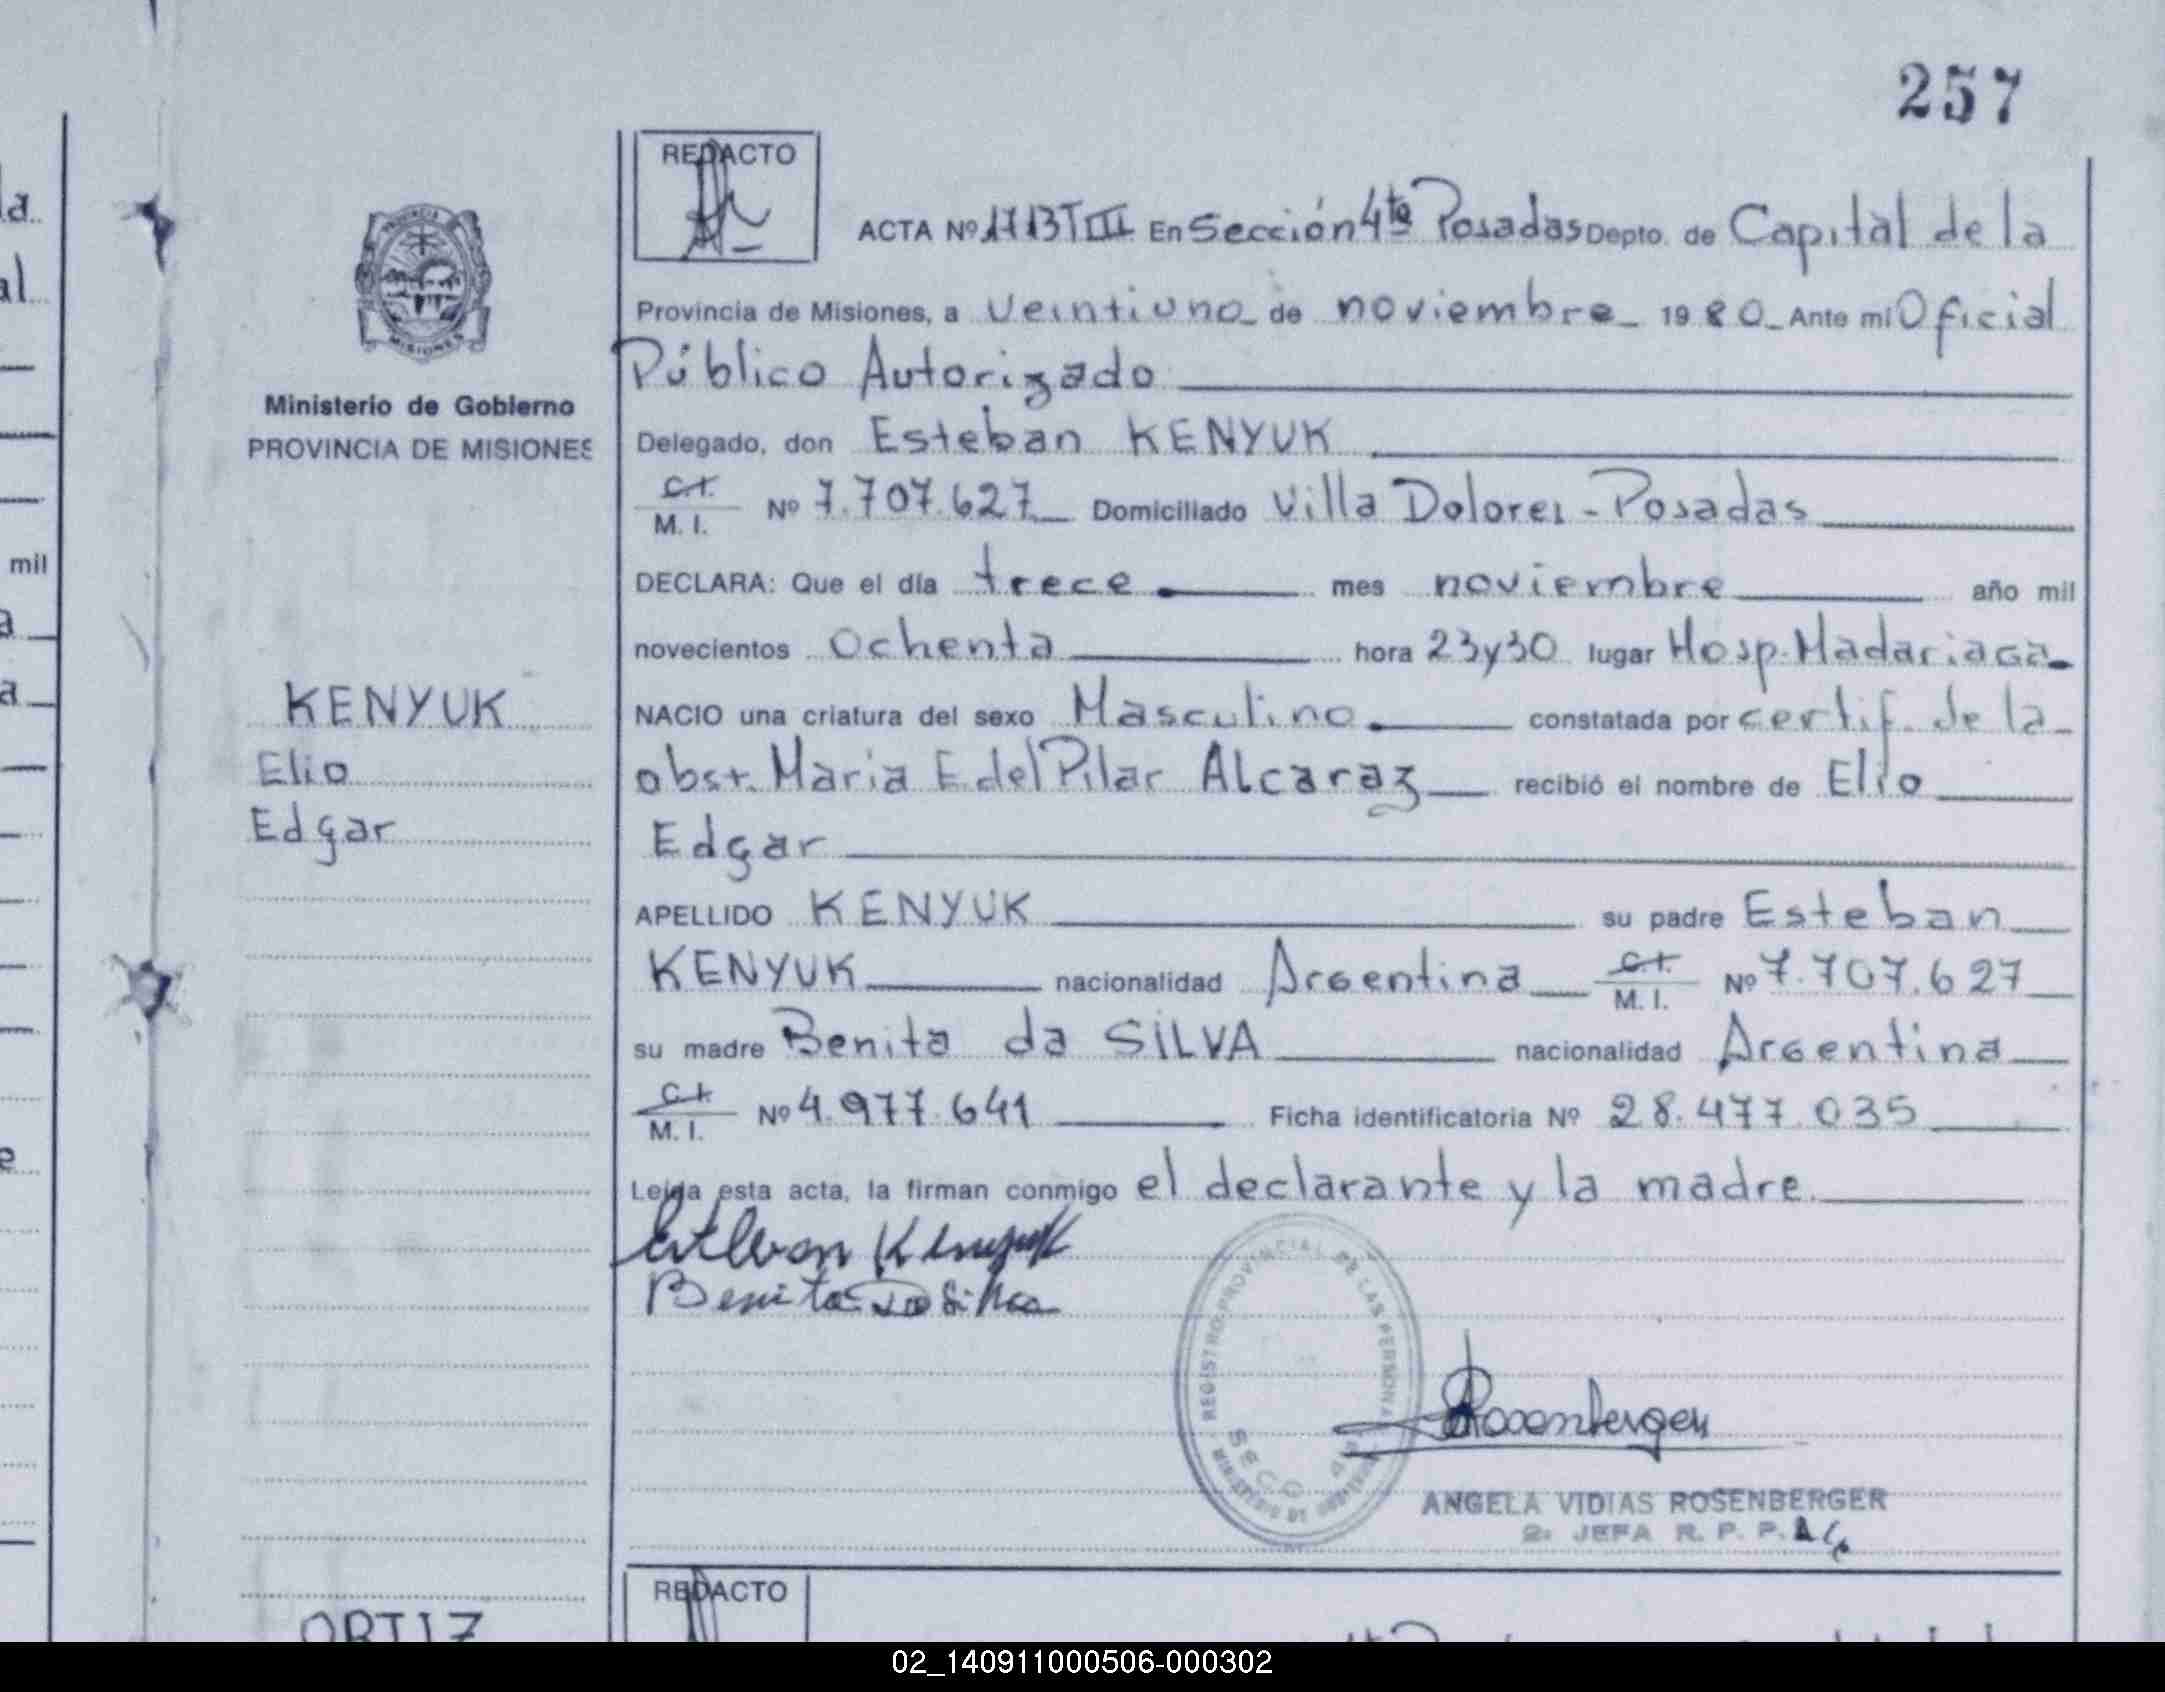 257
REDACTO
ACTA Nº 1713 T III En Sección 4ta Posadas Depto. de Capital de la
Provincia de Misiones, a veintiuno de noviembre 1980 Ante mi Oficial
Público Autorizado
Delegado, don Esteban KENYUK
C.I. M. I. Nº 7.707.627 Domiciliado Villa Dolores - Posadas
DECLARA: Que el día trece mes noviembre año mil
novecientos Ochenta hora 23y30 lugar Hosp. Madariaga
NACIO una criatura del sexo Masculino constatada por certif. de la
obst. Maria E del Pilar Alcaraz recibió el nombre de Elio
Edgar
APELLIDO KENYUK su padre Esteban
KENYUK nacionalidad Argentina C.I. M. I. Nº 7.707.627
su madre Benita da SILVA nacionalidad Argentina
C.I. M. I. Nº 4.977.641 Ficha identificatoria Nº 28.477.035
Leída esta acta, la firman conmigo el declarante y la madre.
Esteban Kenyuk
Benita Da Silva
REGISTRO PROVINCIAL DE LAS PERSONAS
MINISTERIO DE GOBIERNO
SECC. 4ta
Rosenberger
ANGELA VIDIAS ROSENBERGER
2ª JEFA R. P. P.
REDACTO
PROVINCIA
MISIONES
Ministerio de Gobierno
PROVINCIA DE MISIONES
KENYUK
Elio
Edgar
ORTIZ
da
al
mil
a
a
e
02_140911000506-000302